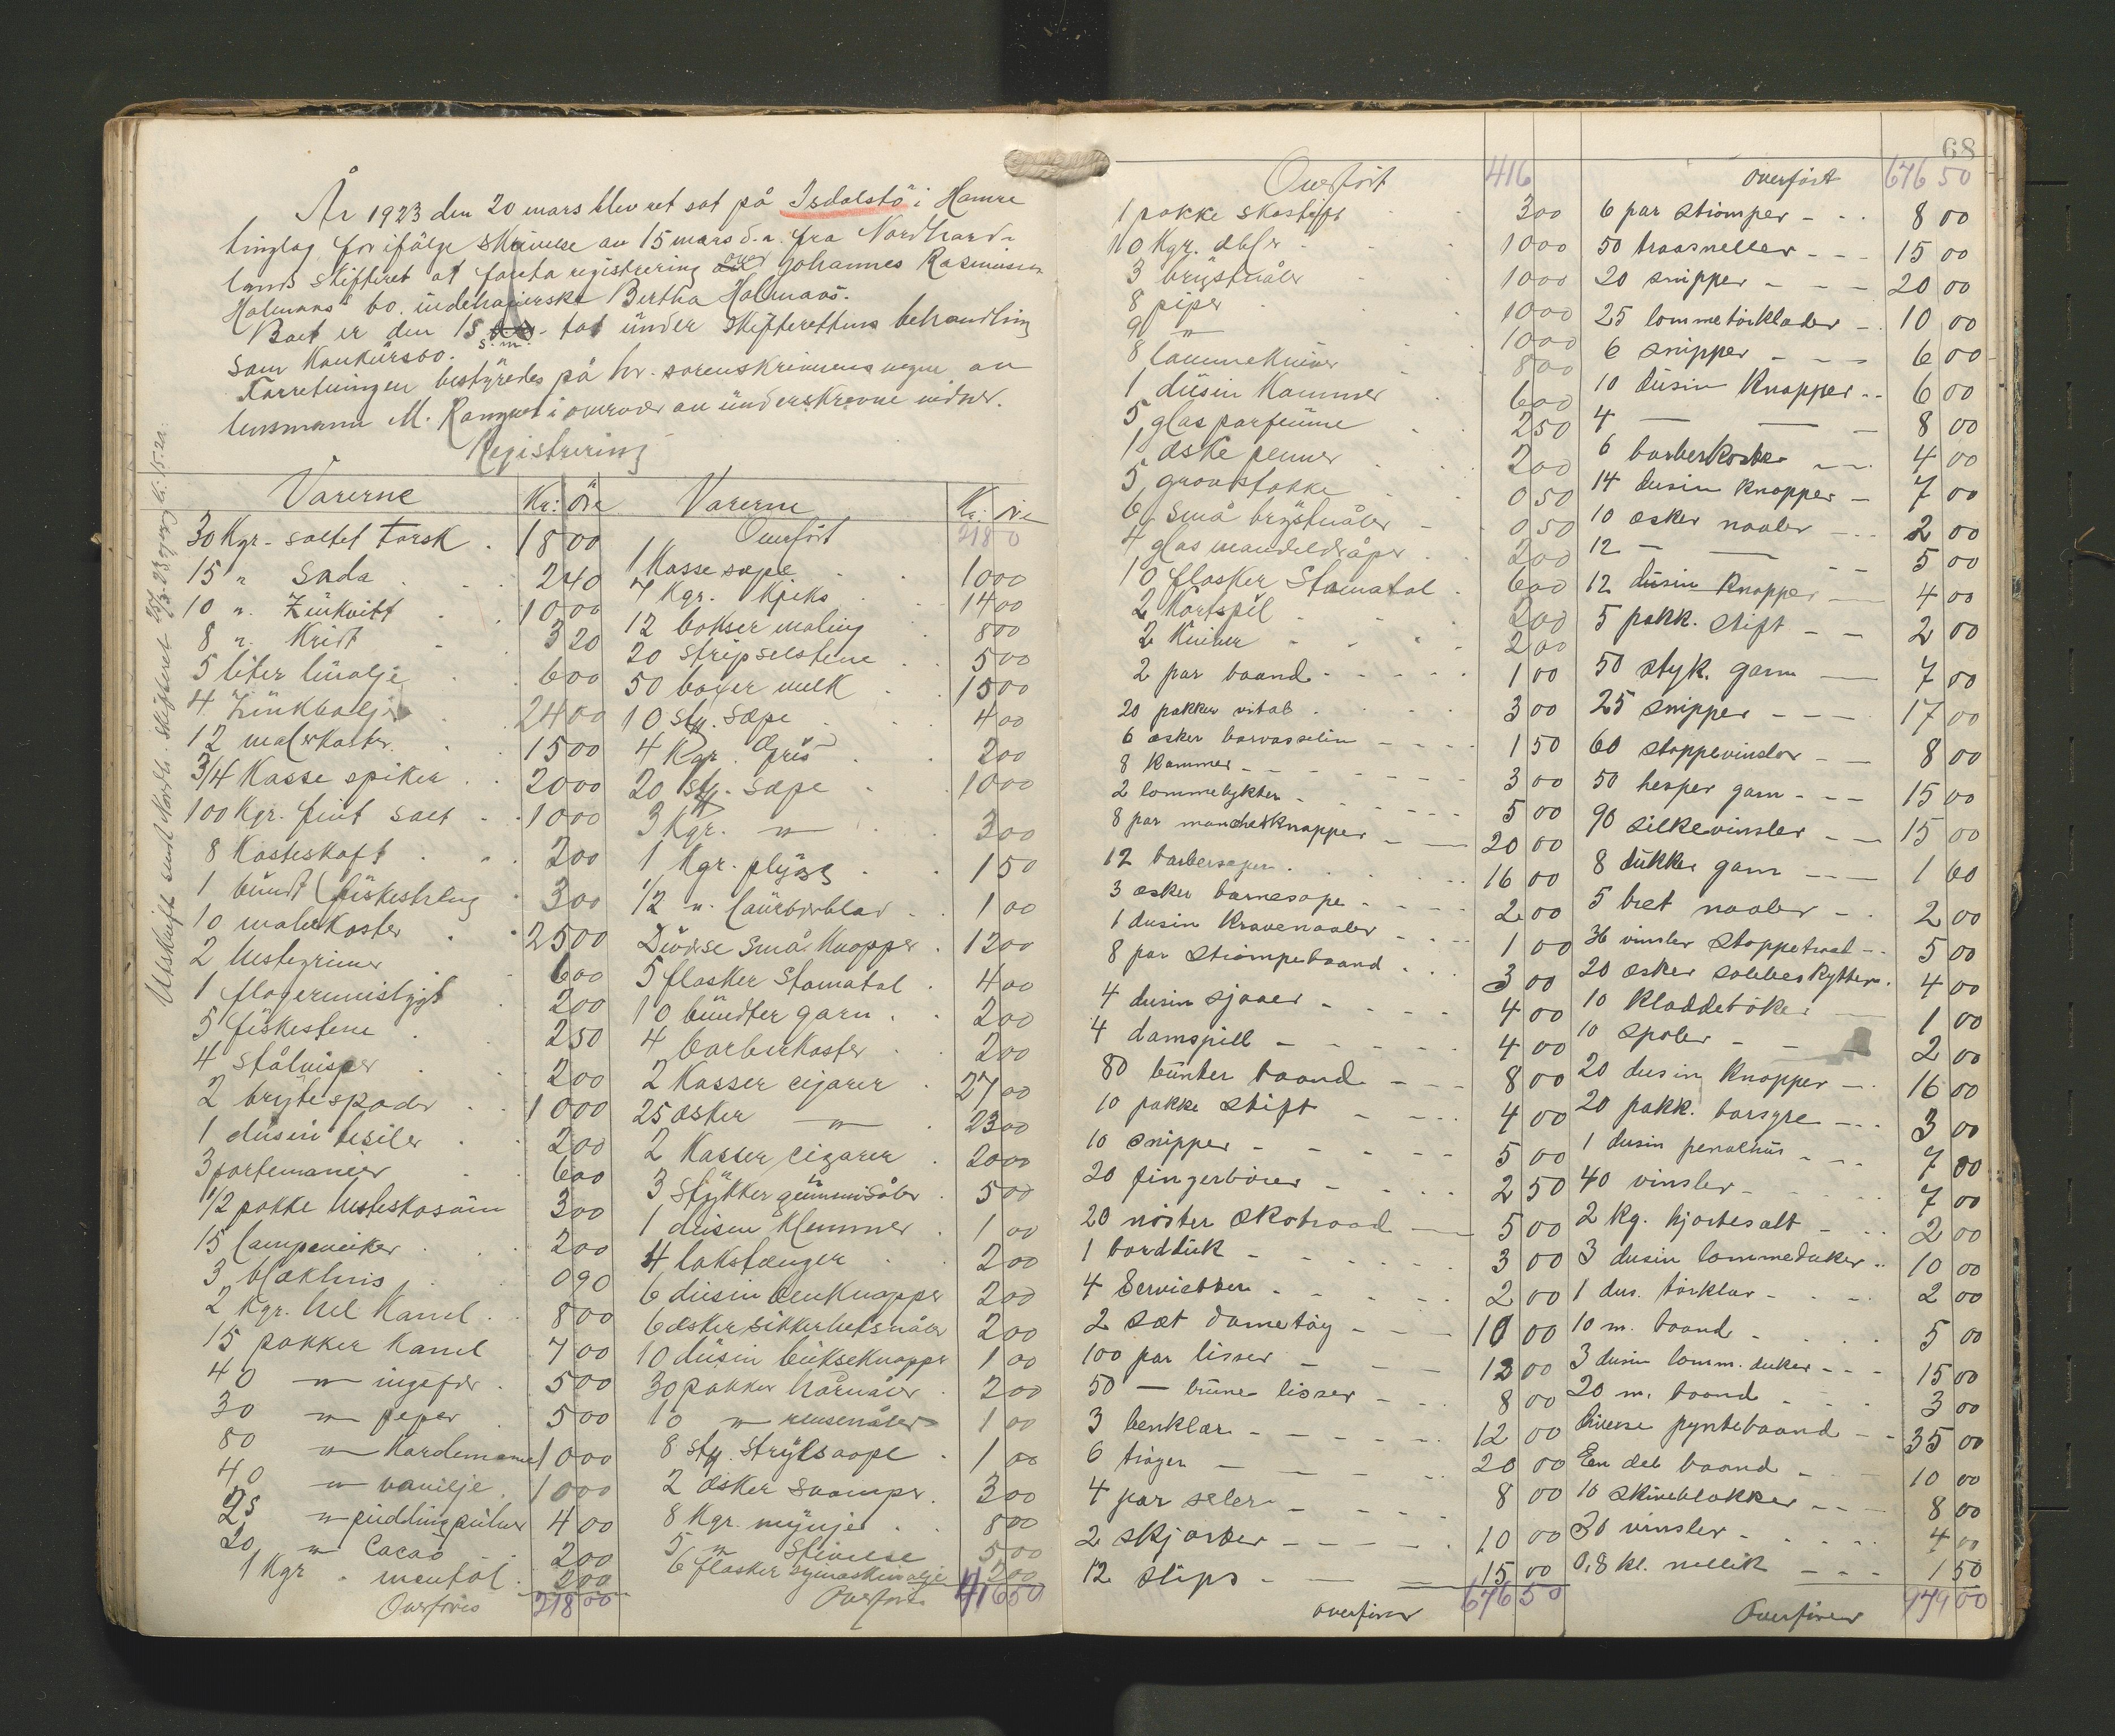 År 1923 den 20 mars blev ret sat på Isdalstö i Hamre
tinglag for ifålge skrivelse av 15 mars d.a. fra Nordhord-
lands skifteret at foreta registrering over Johannes Rasmussen
Holmaas' bo. indehaverske Bertha Holmaas.
Boet er den 15 s.m. tat under skifterettens behandling
som Konkursbo.
Forretningen bestyredes på hr. sorenskriverens vegne av
lensmann M. i overvær av underskrevne vidner.
Registrering
Utskrift sendt Nordh. skifteret
Varerne Kr: Öre
30 Kgr. saltet Torsk 18 00
15 " Soda 2 40
10 " Zinkvitt 10 00
8 " Krit 3 20
5 liter linolje 6 00
4 Zinkbaljer 24 00
12 malerkoster 15 00
3/4 Kasse spiker 20 00
100 Kgr. fint salt 10 00
8 Kosteskaft 2 00
1 bundt fiskestreng 3 00
10 malerkoster 25 00
2 hestegrimer 6 00
1 2 00
5 fiskestene 2 50
4 Stålvisper 2 00
2 brytespader 10 00
1 dusin besiler 2 00
3 portemonéer 6 00
1/2 pakke hesteskosöm 3 00
15 lampeveiker 2 00
3 blækhus 0 90
2 Kgr. hel Kanel 8 00
15 pakker Kanel 7 00
40 " ingefær 5 00
30 " peper 5 00
80 " Kardemome 10 00
40 " vanilje 10 00
25 " puddingpulver 4 00
20 " Cacao 2 00
1 Kgr. mentol 2 00
Overföres 218 00
Varerne Kr: öre
Overfört 218 0
1 Kasse sæpe 10 00
7 Kgr. Kjeks 14 00
12 bokser maling 8 00
20 Stripselstene 5 00
50 boxer melk 15 00
10 sty. Sæpe 4 00
4 Kgr. Gris 2 00
20 sty. sæpe 10 00
3 Kgr. " 3 00
1 Kgr. plygg 1 50
1/2 " laurbærblad 1 00
Diverse små Knapper 12 00
5 flasker Stomatol 4 00
10 bundter garn 2 00
4 barberkoster 2 00
2 Kasser cigarer 27 00
25 æsker " 23 00
2 Kasser cigarer 20 00
3 Stykker gummisåler 5 00
1 dusin Klemmer 1 00
4 lakstænger 2 00
6 dusin benknapper 2 00
6 æsker sikkerhetsnåler 2 00
10 dusin bukseknapper 1 00
30 pakker hårnåler 2 00
10 " 1 00
8 sty. Stryksaape 1 00
2 æsker Svamper 3 00
8 Kgr. mynje 8 00
5 " Stivelse 5 00
6 flasker symaskinolje 2 00
Overföres 416 50
68
Overfört 416
1 pakke skostift 3 00
10 Kgr. 10 00
3 brystnåler 10 00
8 piper 10 00
9 " 10 00
8 lommekniver 8 00
1 dusin Kammer 6 00
5 glas parfeume 2 50
1 æske penner 2 00
5 0 50
6 små brystnåler 0 50
4 glas mandeldråper 2 00
10 flasker Stomatol 6 00
2 Kortspil 2 00
2 Kniver 2 00
2 par baand 1 00
20 pakker vitab 3 00
6 æsker borvasselin 1 50
8 kammer 3 00
2 lommelykter 5 00
8 par manchetknapper 20 00
12 barbersaper 16 00
3 æsker barnesape 2 00
1 dusin kravenaaler 1 00
8 par strömpebaand 3 00
4 dusin sjaaer 4 00
4 damspill 4 00
80 bunter baand 8 00
10 pakke stift 4 00
10 snipper 5 00
20 fingerböier 2 50
20 nöster skotraad 5 00
1 bordduk 3 00
4 Servietter 2 00
2 sæt dametöy 10 00
100 par lisser 12 00
50 — brune lisser 8 00
3 benklær 12 00
6 tröyer 20 00
4 par seler 8 00
2 skjorter 10 00
12 slips 15 00
overföres 676 50
overfört 676 50
6 par strömper 8 00
50 traasneller 15 00
20 snipper 20 00
25 lommetörklæder 10 00
6 snipper 6 00
10 dusin Knapper 6 00
4 — — 8 00
6 barberkoster 4 00
14 dusin knapper 7 00
10 æsker naaler 2 00
12 — — 5 00
12 dusin Knapper 4 00
5 pakk. stift 2 00
50 styk. garn 7 00
25 snipper 17 00
60 stoppevinsler 8 00
50 hesper garn 15 00
90 silkevinsler 15 00
8 dukker garn 1 60
5 bret naaler 2 00
36 vinsler stoppetraad 5 00
20 æsker 4 00
10 kladdeböker 1 00
10 spoler 2 00
20 dusin Knapper 16 00
20 pakk. borsyre 3 00
1 dusin penalhus 7 00
40 vinsler 7 00
2 kg. hjortesalt 2 00
3 dusin lommeduker 10 00
1 dus. törklær 2 00
10 m. baand 5 00
3 dusin lomm. duker 15 00
20 m. baand 3 00
Diverse pyntebaand 35 00
En del baand 10 00
10 skriveblokker 8 00
30 vinsler 4 00
0,8 kl. nellik 1 50
Overföres 979 00